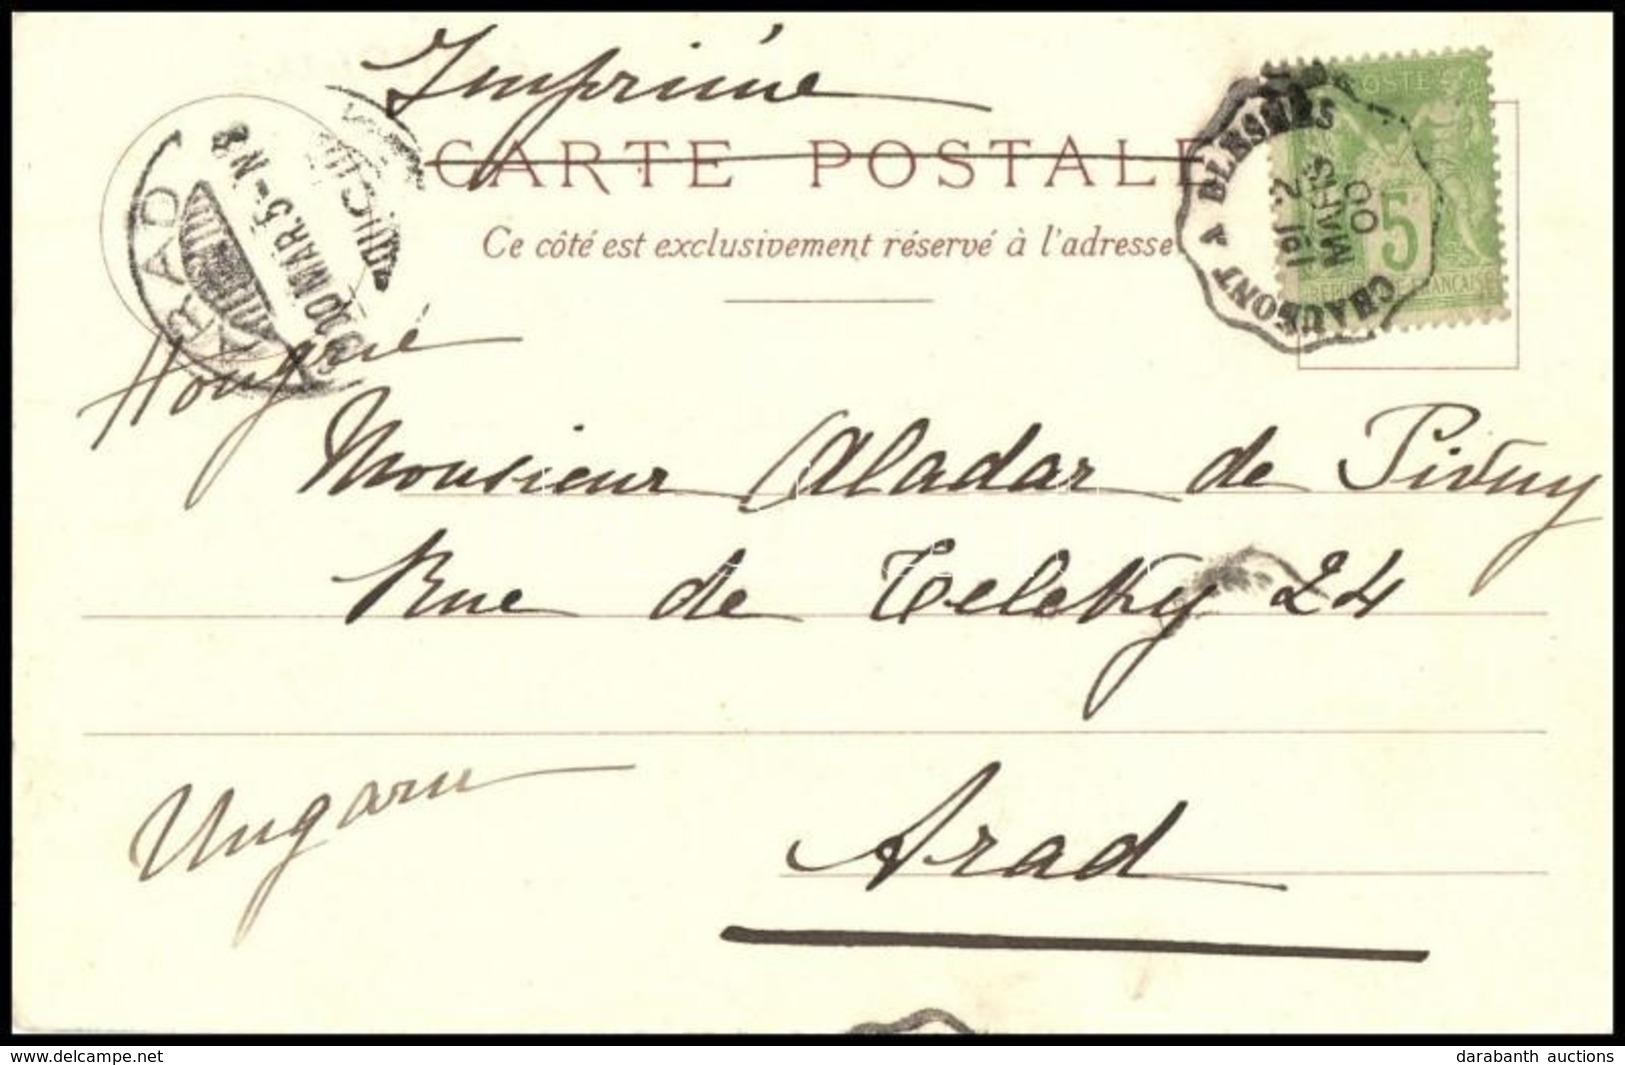 Imprimé
CARTE POSTALE
Ce côté est exclusivement réservé à l'adresse
POSTES
5
RÉPUBLIQUE FRANÇAISE
CHAUMONT A BLESMES
2
MARS
00
ARAD
900 MAR. 5 - N 8
Hongrie
Monsieur Aladar de Pivny
Rue de Teleky 24
Ungarn
Arad
delcampe.net
darabanth auctions